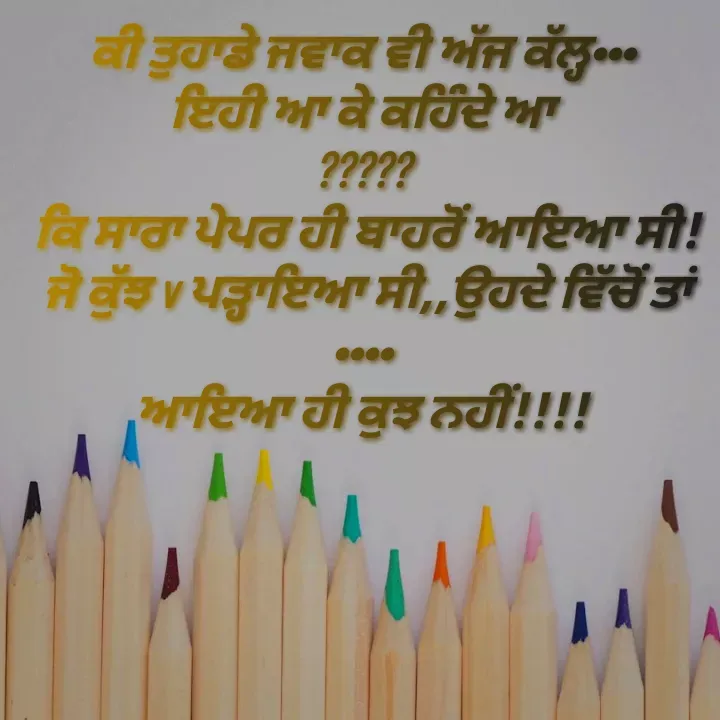 ਕੀ ਤੁਹਾਡੇ ਜਵਾਕ ਵੀ ਅੱਜ ਕੱਲ੍ਹ•••
ਇਹੀ ਆ ਕੇ ਕਹਿੰਦੇ ਆ
?????
ਕਿ ਸਾਰਾ ਪੇਪਰ ਹੀ ਬਾਹਰੋਂ ਆਇਆ ਸੀ!
ਜੋ ਕੁੱਝ v ਪੜ੍ਹਾਇਆ ਸੀ,,ਉਹਦੇ ਵਿੱਚੋਂ ਤਾਂ
••••
ਆਇਆ ਹੀ ਕੁਝ ਨਹੀਂ!!!!